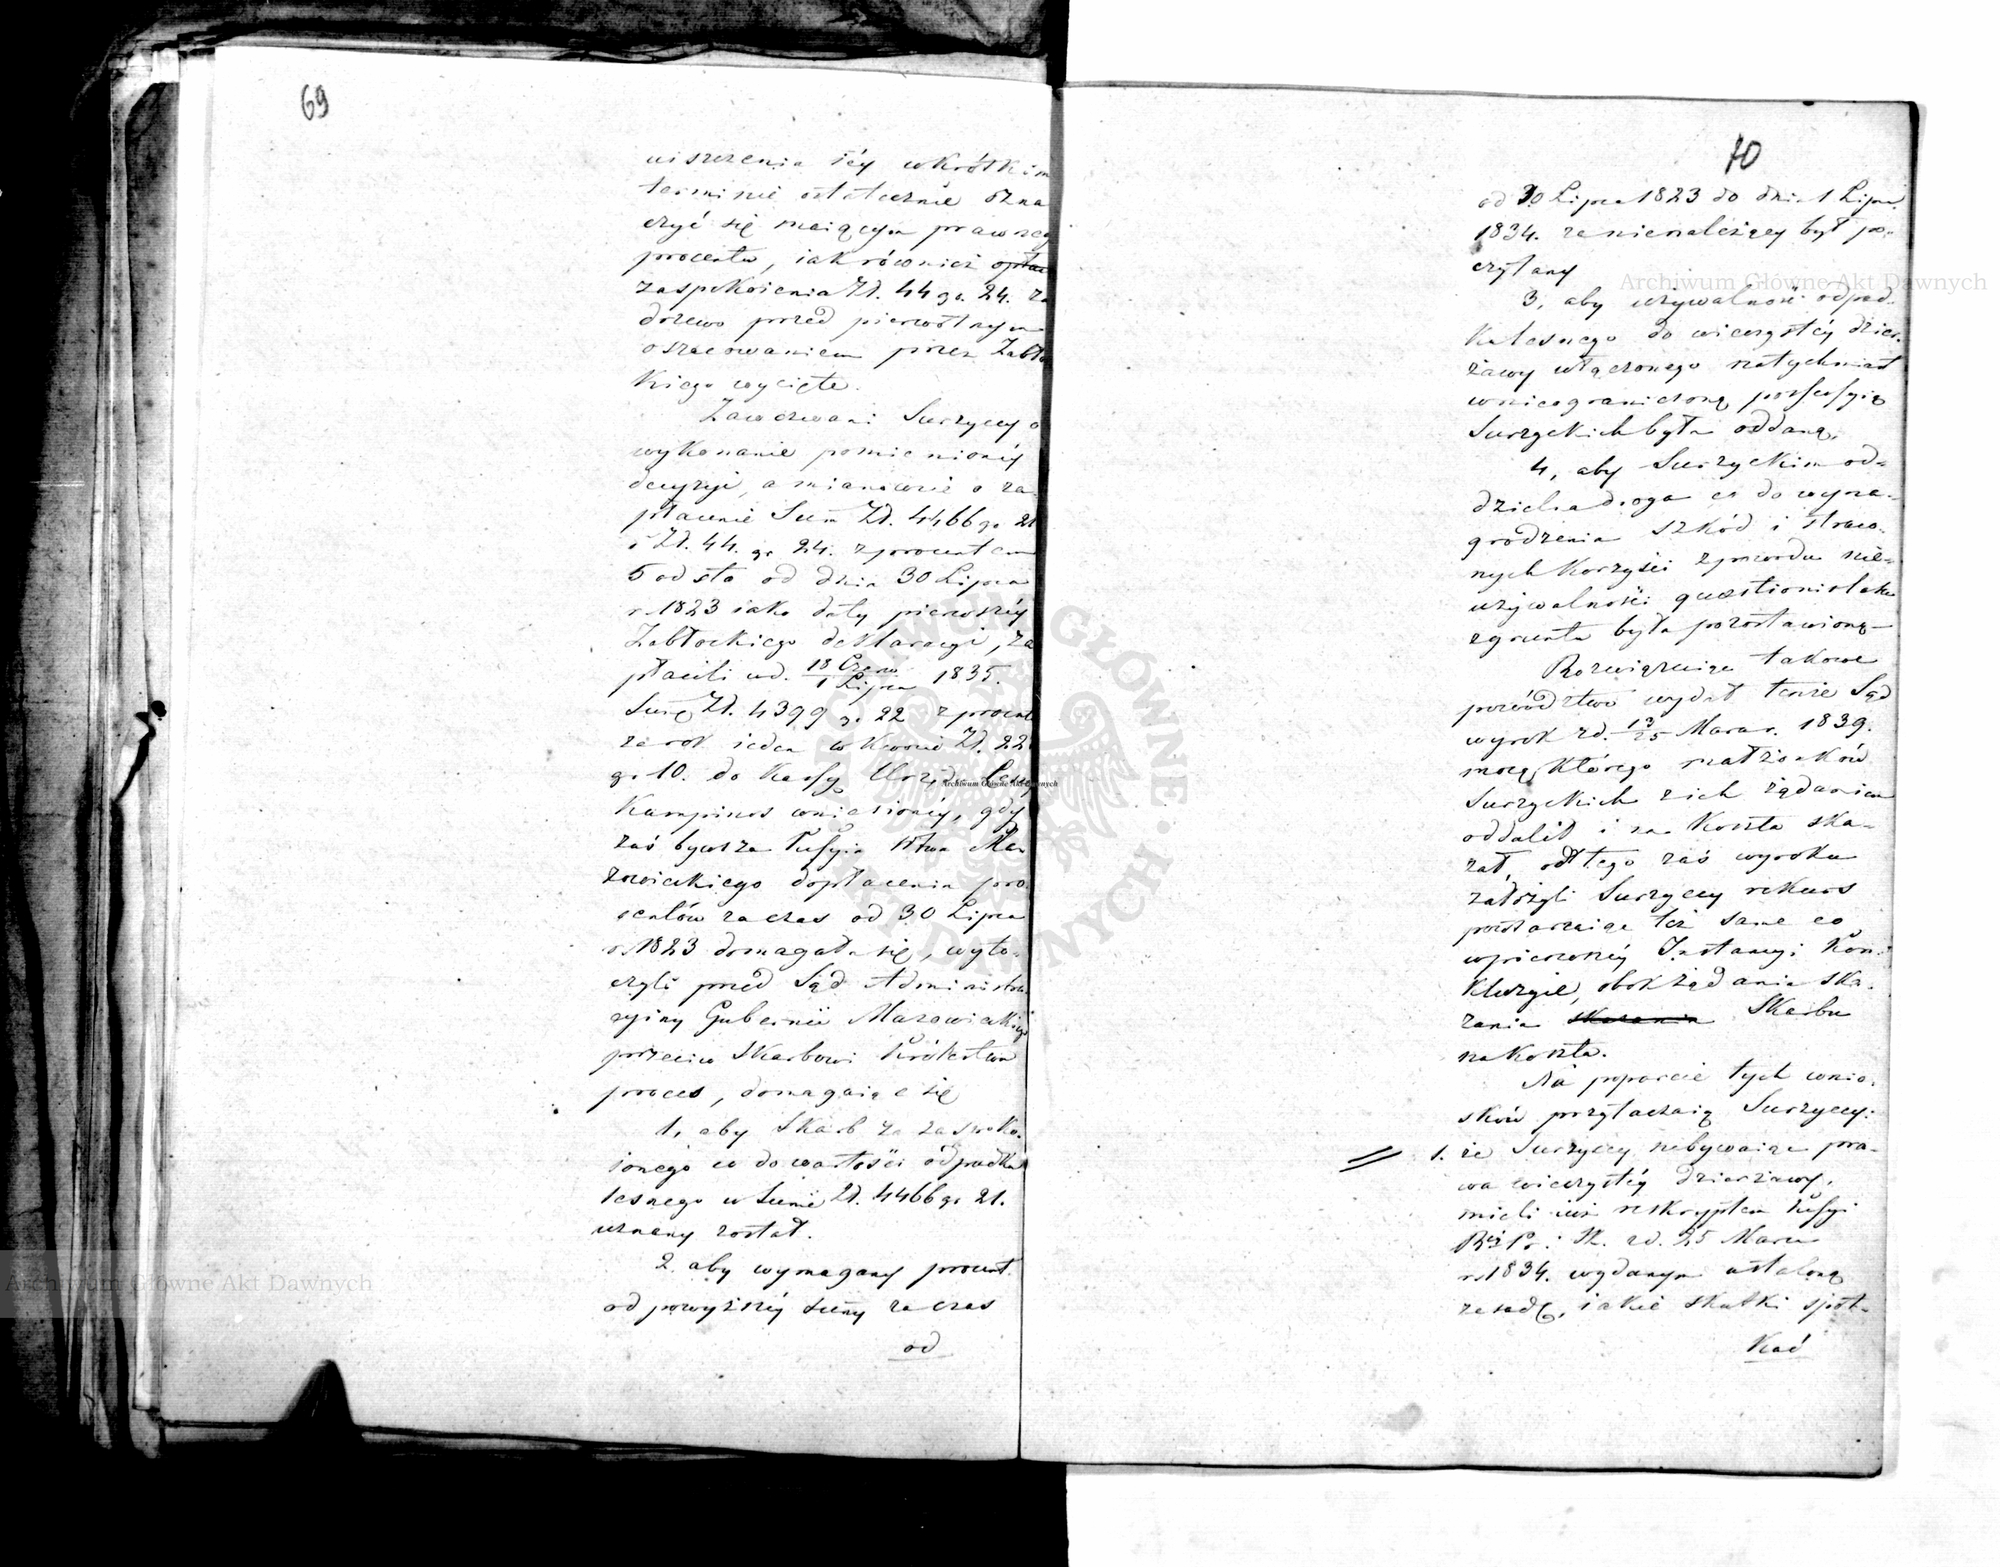 69
uiszczenia téy w krótkim
terminie ostatecznie ozna
czyć się maiącym prawnego
procentu, iak również opłac
zaspokoienia Zł. 44 gr. 24. za
drzewo przed pierwotnym
oszacowaniem przez Zabło
kiego wycięte.
Zawezwani Surzyccy o
wykonanie pomienionéy
decyzyi, a mianowicie o za
płacenie Sum Zł. 4466 gr 21
i Zł. 44. gr 24. z procentem
5 od sta od dnia 30 Lipca
r. 1823 iako daty pierwszéy
Zabłockiego deklaracyi, za
płacili wd. 18 Czerw./1 Lipca 1835.
Sumę Zł. 4399 gr 22 z procent
za rok ieden w kwocie Zł. 22
gr 10. do Kassy Urzędu Leśn
Kampinos wniesionéy, gdy
zaś bywsza Kommissya Wtwa Ma
zowieckiego dopłacenia pro
centów za czas od 30 Lipca
r. 1823 domagała się, wyto-
czyli przed Sąd Administra
cyiny Gubernii Mazowieckiéy
przeciw Skarbowi Królestwa
proces, domagaiąc się
1, aby Skarb za zaspoko-
ionego co do wartości odpadku
lesnego w Sumie Zł. 4466 gr 21.
uznany został.
2. aby wymagany procent
od powyższéy Sumy za czas
od
70
od 30 Lipca 1823 do dnia 1 Lipca
1834. za nienależący był po-
czytany
3, aby używalność odpad-
ku lesnego do wieczystéy dzier-
żawy włączonego natychmiast
w nieograniczoną possessyią
Surzyckich była oddaną.
4, aby Surzyckim od-
dzielna droga co do wyna-
grodzenia szkód i straco-
nych korzyści z powodu nie-
używalności quaestionis lasku
z gruntu była pozostawioną
Rozwiązuiąc takowe
powództwo wydał tenże Sąd
wyrok z d. 13/25 Marca r. 1839.
mocą którego małżonków
Surzyckich z ich żądaniem
oddalił i na koszta ska-
zał, od tego zaś wyroku
założyli Surzyccy rekurs
powtarzaiąc też same co
w pierwszéy Instancyi Kon-
kluzyie, obok żądania ska-
zania skazania Skarbu
na koszta.
Na poparcie tych wnio-
sków przytaczaią Surzyccy:
1. że Surzyccy nabywaiąc pra-
wa wieczystéy dzierżawy,
mieli iuż reskryptem Kommissyi
Rząd. Pr. i Sk. z d. 25 Marca
r. 1834. wydanym ustaloną
zasadę, iakie skutki spot-
kać
Archiwum Główne Akt Dawnych
Archiwum Główne Akt Dawnych
Archiwum Główne Akt Dawnych